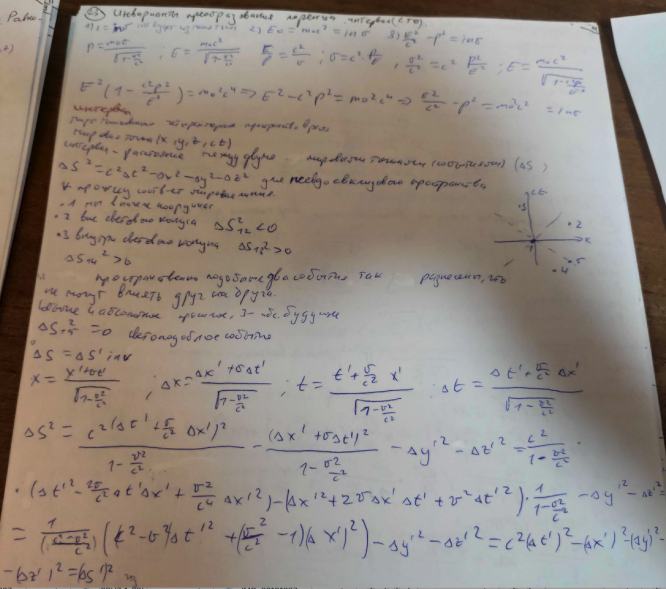 23 Инварианты преобразования Лоренца. Интервал (СТО).
2) E₀ = m₀c² = inv 3) E²/c² - p² = inv
p = m₀v/√(1-v²/c²), E = m₀c²/√(1-v²/c²) E/p = c²/v; v = c² p/E, v²/c² = c² p²/E²; E = m₀c²/√(1-c²p²/E²)
E²(1 - c²p²/E²) = m₀²c⁴ => E² - c²p² = m₀²c⁴ => E²/c² - p² = m₀²c² = inv
интервал
мировая точка (x, y, z, ct)
интервал - расстояние между двумя мировыми точками (событиями) (ΔS)
ΔS² = c²Δt² - Δx² - Δy² - Δz² для псевдоевклидового пространства
• 1 мы в начале координат
• 2 вне светового конуса ΔS₁₂² < 0
• 3 внутри светового конуса ΔS₁₃² > 0
ΔS₁₄² > 0
ct
x
1
• 2
• 3
• 4
• 5
пространственно подобные два события так разнесены, что
не могут влиять друг на друга.
событие 4 абсолютное прошлое, 3 - абс. будущее
= 0 светоподобное событие
ΔS = ΔS' inv
x = (x' + vt')/√(1-v²/c²); Δx = (Δx' + vΔt')/√(1-v²/c²); t = (t' + v/c² x')/√(1-v²/c²) Δt = (Δt' + v/c² Δx')/√(1-v²/c²)
ΔS² = c²(Δt' + v/c² Δx')²/(1-v²/c²) - (Δx' + vΔt')²/(1-v²/c²) - Δy'² - Δz'² = c²/(1-v²/c²) ·
· (Δt'² - 2v/c² Δt'Δx' + v²/c⁴ Δx'²) - (Δx'² + 2vΔx'Δt' + v²Δt'²) · 1/(1-v²/c²) - Δy'² - Δz'² =
((c² - v²)Δt'² + (v²/c² - 1)(Δx')²) - Δy'² - Δz'² = c²(Δt')² - (Δx')² - (Δy')² -
- (Δz')² = (ΔS')²